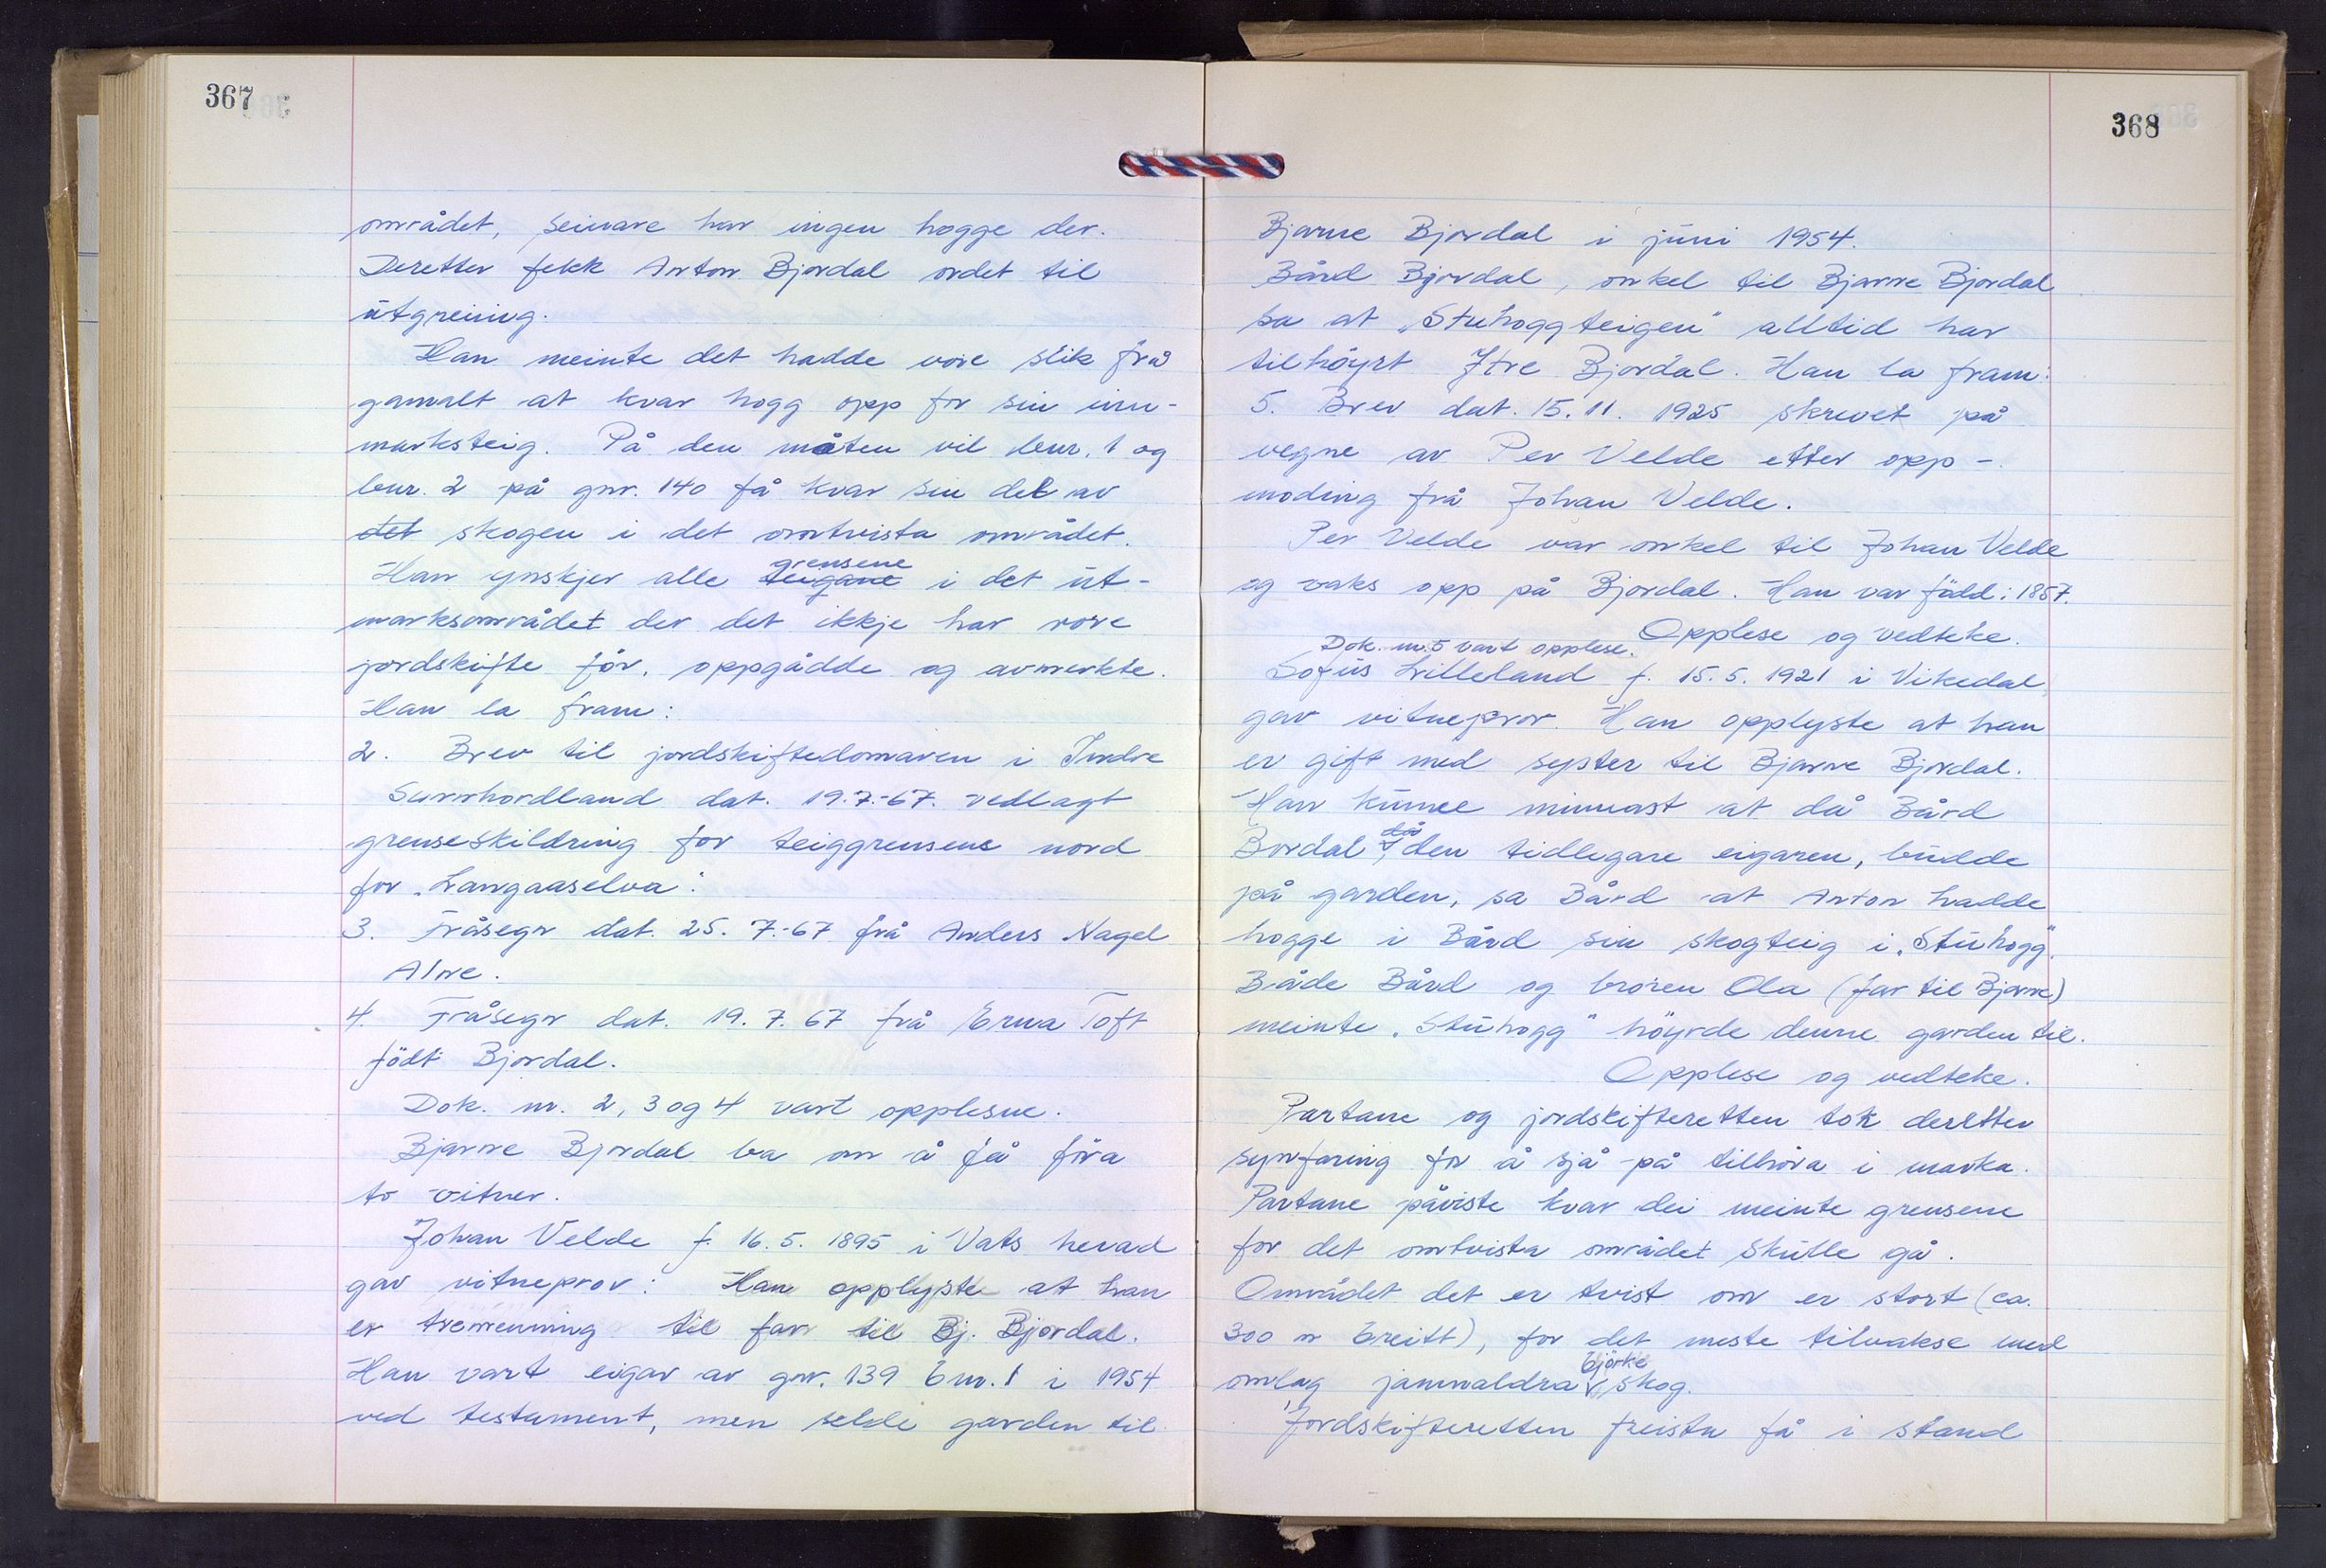 367
området, seinare har ingen hogge der.
Deretter fekk Anton Bjordal ordet til
utgreiing.
Han meinte det hadde vore slik frå
gamalt at kvar hogg opp for sin inn-
marksteig. På den måten vil bnr. 1 og
bnr. 2 på gnr. 140 få kvar sin del av
det skogen i det omtvista området.
Han ynskjer alle teigane grensene i det ut-
marksområdet der det ikkje har vore
jordskifte før, oppgådde og avmerkte.
Han la fram:
2. Brev til jordskiftedomaren i Indre
Sunnhordland dat. 19.7.-67. vedlagt
grenseskildring for teiggrensene nord
for „Langaaselva".
3. Fråsegn dat. 25. 7.-67 frå Anders Nagel
Alne.
4. Fråsegn dat. 19. 7. 67 frå Erna Toft
født Bjordal.
Dok. nr. 2, 3 og 4 vart opplesne.
Bjarne Bjordal ba om å få føra
to vitner.
Johan Velde f. 16. 5. 1895 i Vats herad
gav vitneprov: Han opplyste at han
er tremenning til far til Bj. Bjordal.
Han vart eigar av gnr. 139 bnr. 1 i 1954
ved testament, men selde garden til
368
Bjarne Bjordal i juni 1954.
Bård Bjordal, onkel til Bjarne Bjordal
sa at „Stuhoggteigen" alltid har
tilhøyrt Ytre Bjordal. Han la fram:
5. Brev dat. 15. 11. 1925 skrevet på
vegne av Per Velde etter opp-
moding frå Johan Velde.
Per Velde var onkel til Johan Velde
og vaks opp på Bjordal. Han var fødd i 1857.
Opplese og vedteke.
Dok. nr. 5 vart opplese.
Sofus Lilleland f. 15. 5. 1921 i Vikedal,
gav vitneprov. Han opplyste at han
er gift med syster til Bjarne Bjordal.
Han kunne minnast at då Bård
Bordal, då den tidlegare eigaren, budde
på garden, sa Bård at Anton hadde
hogge i Bård sin skogteig i „Stuhogg".
Både Bård og broren Ola (far til Bjarne)
meinte „Stuhogg" høyrde denne garden til.
Opplese og vedteke.
Partane og jordskifteretten tok deretter
synfaring for å sjå på tilhøva i marka.
Partane påviste kvar dei meinte grensene
for det omtvista området skulle gå.
Området det er tvist om er stort (ca.
300 m breitt), for det meste tilvakse med
omlag jamnaldra bjørke skog.
Jordskifteretten freista få i stand